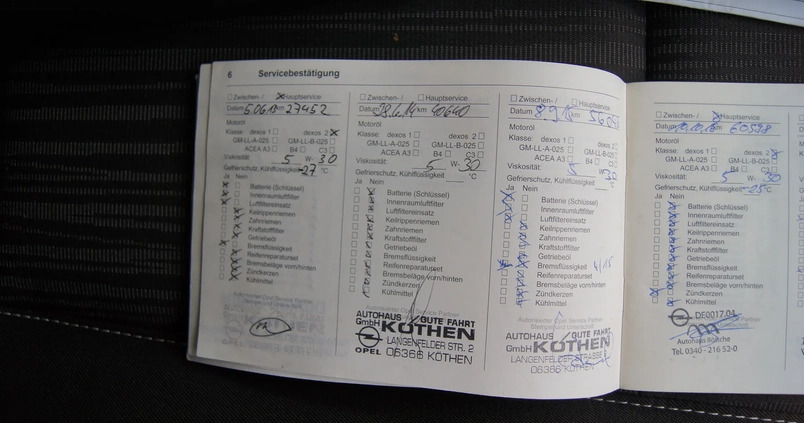 6 Servicebestätigung
☐ Zwischen- / ☒ Hauptservice
Datum 5.06.13 km 27452
Motoröl
Klasse: dexos 1 ☐ dexos 2 ☒
GM-LL-A-025 ☐ GM-LL-B-025 ☐
ACEA A3 ☐ B4 ☐ C3 ☐
Viskosität 5 W- 30
Gefrierschutz, Kühlflüssigkeit -27 °C
Ja Nein
Batterie (Schlüssel)
Innenraumluftfilter
Luftfiltereinsatz
Keilrippenriemen
Zahnriemen
Kraftstofffilter
Getriebeöl
Bremsflüssigkeit
Reifenreparaturset
Bremsbeläge vorn/hinten
Zündkerzen
Kühlmittel
☐ Zwischen- / ☐ Hauptservice
Datum km 40640
Motoröl
Klasse: dexos 1 ☐ dexos 2 ☐
GM-LL-A-025 ☐ GM-LL-B-025 ☐
ACEA A3 ☐ B4 ☐ C3 ☐
Viskosität: 5 W- 30
Gefrierschutz, Kühlflüssigkeit °C
Ja Nein
Batterie (Schlüssel)
Innenraumluftfilter
Luftfiltereinsatz
Keilrippenriemen
Zahnriemen
Kraftstofffilter
Getriebeöl
Bremsflüssigkeit
Reifenreparaturset
Bremsbeläge vorn/hinten
Zündkerzen
Kühlmittel
AUTOHAUS GUTE FAHRT
GmbH KÖTHEN
LANGENFELDER STR. 2
OPEL 06366 KÖTHEN
☐ Zwischen- / ☐ Hauptservice
Datum
Motoröl
Klasse: dexos 1 ☐ dexos 2
GM-LL-A-025 ☐ GM-LL-B-025
ACEA A3 ☐ B4 ☐ C3
Viskosität: 5 W- 30
Gefrierschutz, Kühlflüssigkeit
Ja Nein
Batterie (Schlüssel)
Innenraumluftfilter
Luftfiltereinsatz
Keilrippenriemen
Zahnriemen
Kraftstofffilter
Getriebeöl
Bremsflüssigkeit 4/15
Reifenreparaturset
Bremsbeläge vorn/hinten
Zündkerzen
Kühlmittel
AUTOHAUS GUTE FAHRT
GmbH KÖTHEN
LANGENFELDER STRASSE
06366 KÖTHEN
☐ Zwischen- / ☒ Hauptservice
Datum km 60598
Motoröl
Klasse: dexos 1 ☐ dexos 2 ☒
GM-LL-A-025 ☐ GM-LL-B-025 ☐
ACEA A3 ☐ B4 ☐ C3 ☐
Viskosität: 5 W- 30
Gefrierschutz, Kühlflüssigkeit -25 °C
Ja Nein
Batterie (Schlüssel)
Innenraumluftfilter
Luftfiltereinsatz
Keilrippenriemen
Zahnriemen
Kraftstofffilter
Getriebeöl
Bremsflüssigkeit
Reifenreparaturset
Bremsbeläge vorn/hinten
Zündkerzen
Kühlmittel
DE0017.04
Autohaus
Tel. 0340 - 216 52-0